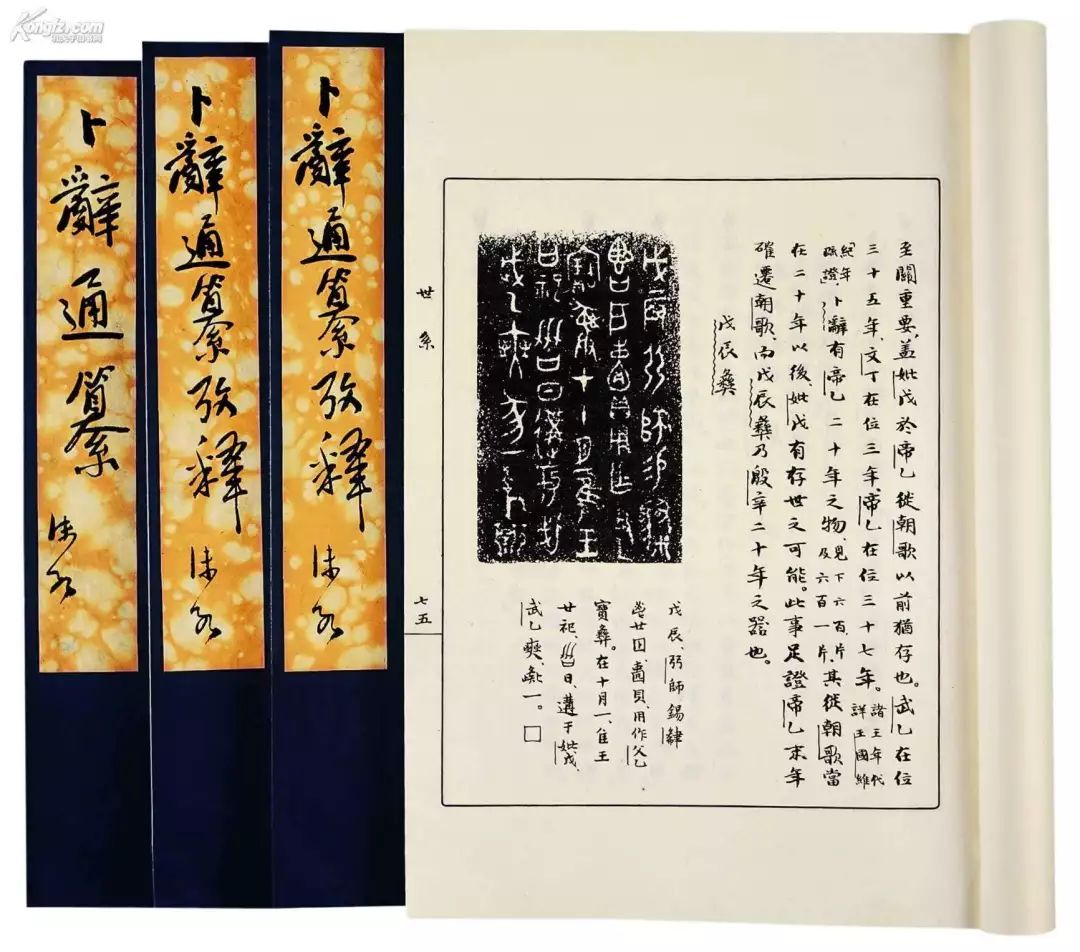 Kongfz.com
孔夫子旧书网
卜辭通纂
沫若
卜辭通纂攷釋
沫若
卜辭通纂攷釋
沫若
至關重要，盖妣戊於帝乙徙朝歌以前猶存也。武乙在位
三十五年，文丁在位三年，帝乙在位三十七年。諸王年代詳王國維
紀年疏證，卜辭有帝乙二十年之物，見下六百片，及六百一片，其徙朝歌當
在二十年以後，妣戊有存世之可能。此事足證帝乙末年
確遷朝歌，而戊辰彝乃殷辛二十年之器也。
戊辰彝
戊辰，弜師錫𢑱
廿 貝，用作父乙
寶彝。在十月一，隹王
廿祀，日，遘于妣戊，
武乙奭，一。□
世系
七五